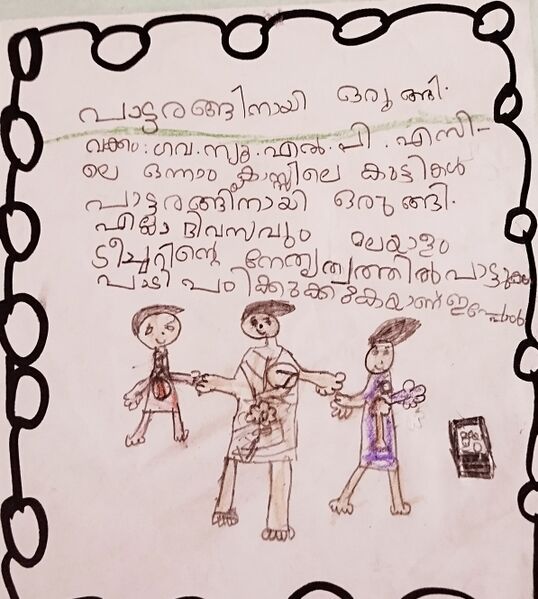 പാട്ടരങ്ങിനായി ഒരുങ്ങി.
വക്കം: ഗവ. ന്യൂ. എൽ. പി. എസി-
ലെ ഒന്നാം ക്ലാസ്സിലെ കുട്ടികൾ
പാട്ടരങ്ങിനായി ഒരുങ്ങി.
എല്ലാ ദിവസവും മലയാളം
ടീച്ചറിന്റെ നേതൃത്വത്തിൽ പാട്ടുകൾ
പാടി ഇപ്പോൾ